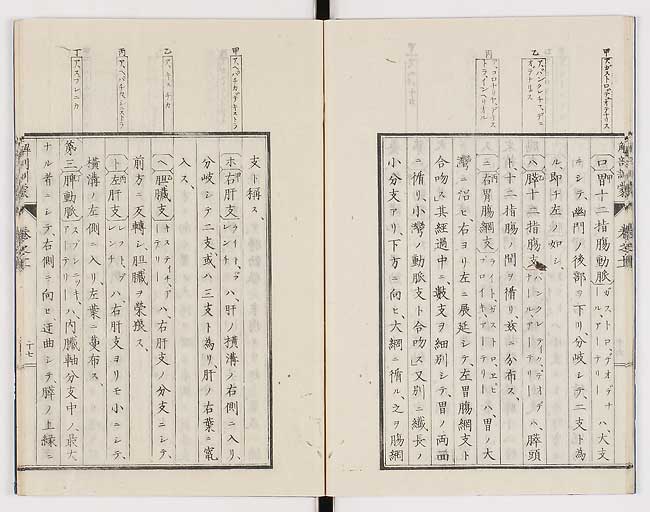 甲 ア、ガストロ、デオデナリス
乙 ア、パンクレチス、デユオデナリス
丙
ロ 胃十二指腸動脈 ガストロ、デオデナール、アーテリー ハ、大支
ニシテ、幽門ノ後部ヲ下リ、分岐シテ、二支ト為
ル、即チ左ノ如シ、
ハ 膵十二指腸支 パンクレアチク、デオデナール、アーテリー ハ、膵頭
ト十二指腸ノ間ヲ循リ、玆ニ分布ス、
ニ 右胃腸網支 ライト、ガストロ、エピプロイキ、アーテリー ハ、胃ノ大
彎ニ沿ヒ右ヨリ左ニ展延シテ、左胃腸網支ト
合吻ス、其経過中ニ、數支ヲ細別シテ、胃ノ両面
ニ循リ、小彎ノ動脈支ト合吻ス、又別ニ纎長ノ
小分支アリ、下方ニ向ヒ、大網ニ循ル、之ヲ腸網
甲 ア、ヘパチカ、デキストラ
乙 ア、キスチカ
丙 ア、ヘパチカ、シニストラ
丁 ア、スプレニカ
支ト稱ス、
ホ 右肝支 ライト、ブレンチ ハ、肝ノ橫溝ノ右側ニ入リ、
分岐シテ、二支、或ハ三支ト為リ、肝ノ右葉ニ竄
入ス、
ヘ 胆臓支 キスティチ、アーテリー ハ、右肝支ノ分支ニシテ、
前方ニ反轉シ、胆臓ヲ榮養ス、
ト 左肝支 レフト、ブレンチ ハ、右肝支ヨリモ小ニシテ、
橫溝ノ左側ニ入リ、左葉ニ蔓布ス、
第三 脾動脈 スプレニック、アーテリー ハ、内臓軸分支中ノ最大
ナル者ニシテ、右側ニ向ヒ、迂曲シテ、膵ノ上縁ニ
十七